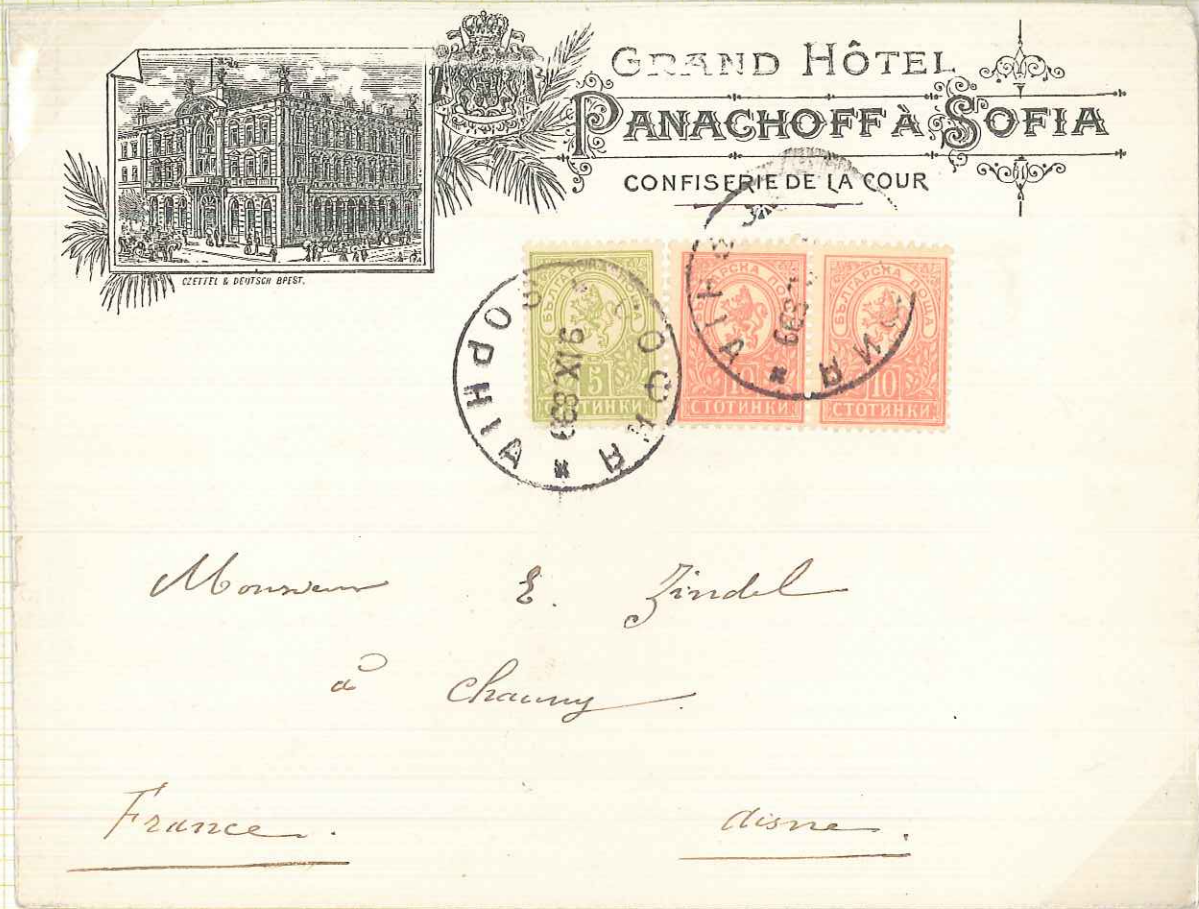 GRAND HÔTEL
PANACHOFF À SOFIA
CONFISERIE DE LA COUR
CZETTEL & DEUTSCH BPEST.
БЪЛГАРСКА ПОЩА
5
СТОТИНКИ
БЪЛГАРСКА ПОЩА
10
СТОТИНКИ
БЪЛГАРСКА ПОЩА
10
СТОТИНКИ
SOPHIA * СОФИЯ
Monsieur E. Zindel
à Chauny
France. Aisne.